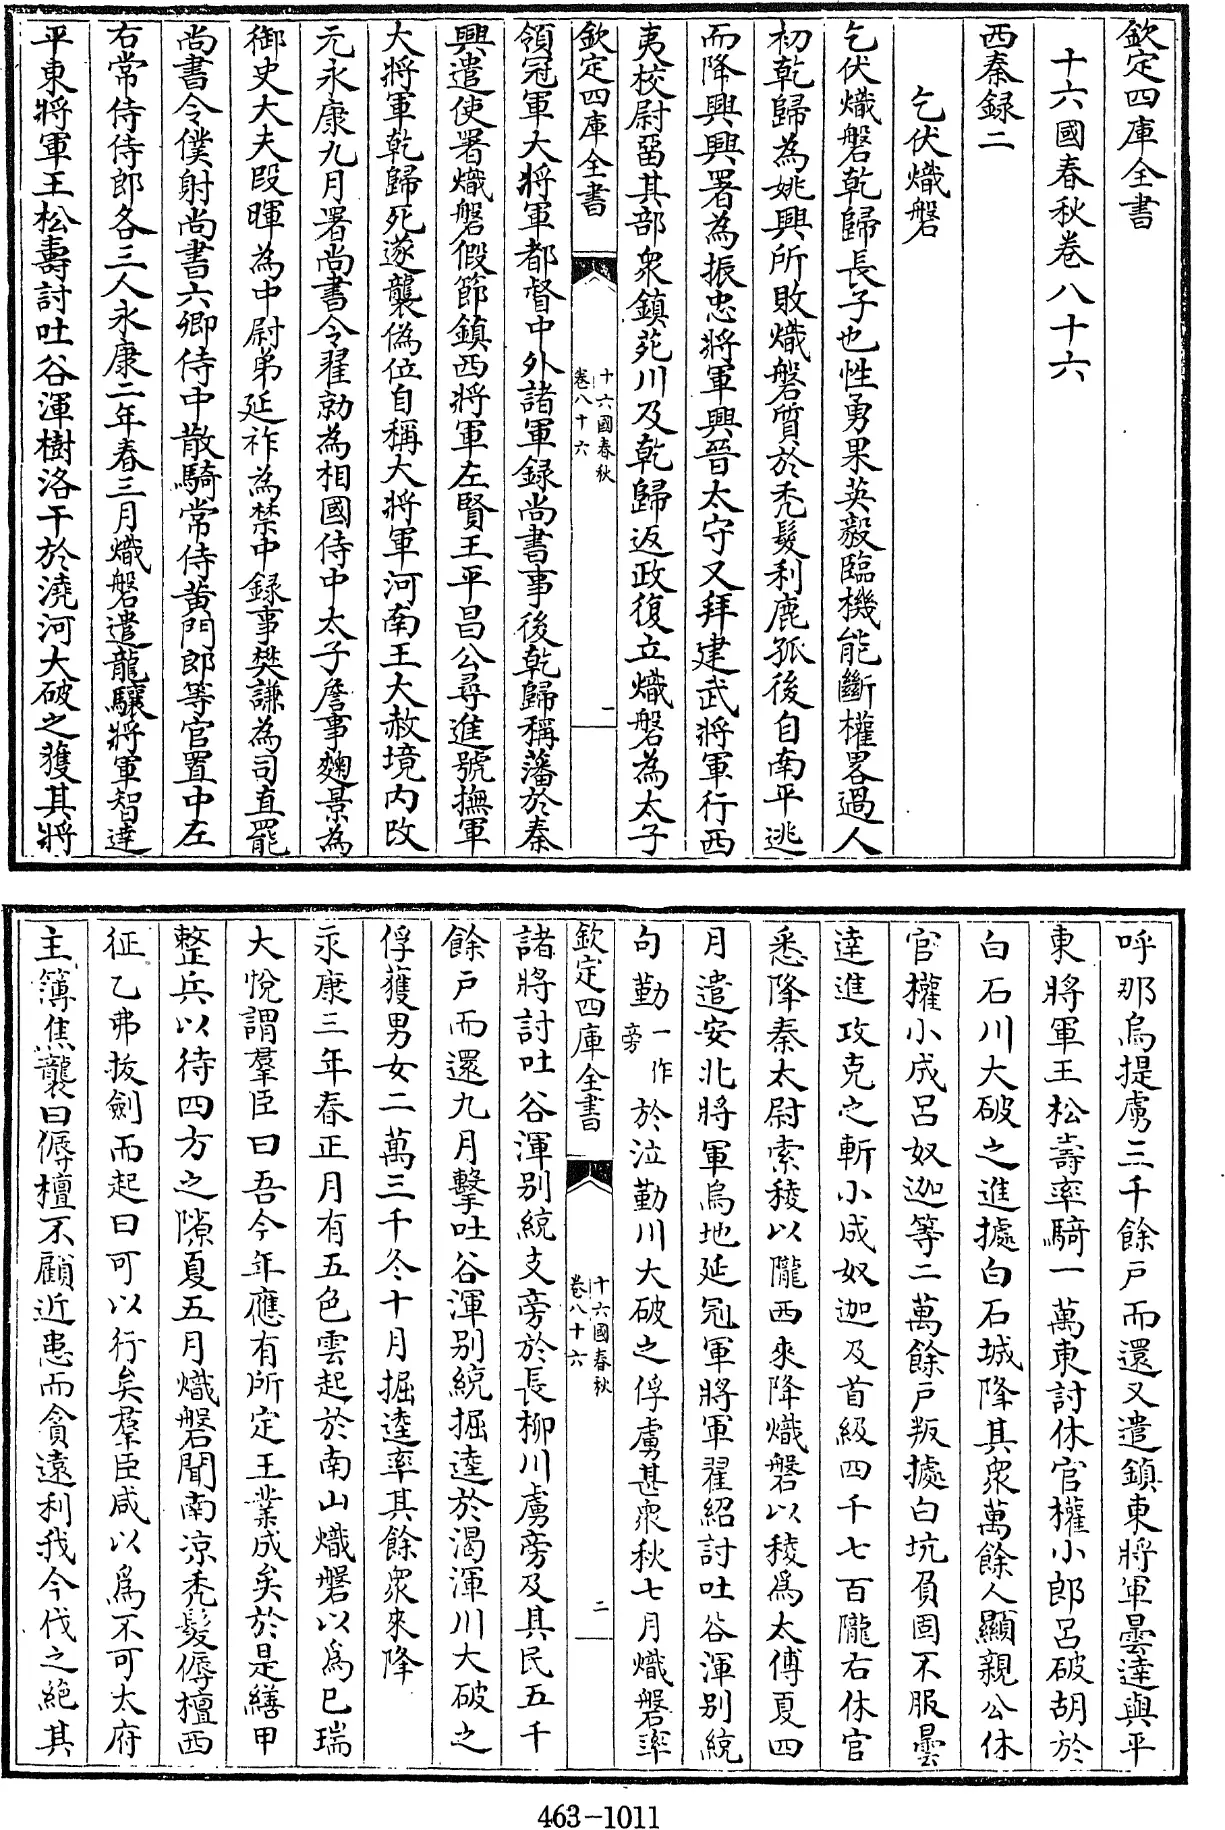 欽定四庫全書
十六國春秋卷八十六
西秦録二
乞伏熾磐
乞伏熾磐乾歸長子也性勇果英毅臨機能斷權畧過人
初乾歸為姚興所敗熾磐質於秃髮利鹿孤後自南平逃
而降興興署為振忠將軍興晉太守又拜建武將軍行西
夷校尉畱其部衆鎮苑川及乾歸返政復立熾磐為太子
欽定四庫全書
十六國春秋
卷八十六
一
領冠軍大將軍都督中外諸軍録尚書事後乾歸稱藩於秦
興遣使署熾磐假節鎮西將軍左賢王平昌公尋進號撫軍
大將軍乾歸死遂襲偽位自稱大將軍河南王大赦境内改
元永康九月署尚書令翟勍為相國侍中太子詹事麹景為
御史大夫段暉為中尉弟延祚為禁中録事樊謙為司直罷
尚書令僕射尚書六卿侍中散騎常侍黄門郎等官置中左
右常侍侍郎各三人永康二年春三月熾磐遣龍驤將軍智達
平東將軍王松壽討吐谷渾樹洛干於澆河大破之獲其將
呼那烏提虜三千餘戸而還又遣鎮東將軍曇達與平
東將軍王松壽率騎一萬東討休官權小郎呂破胡於
白石川大破之進據白石城降其衆萬餘人顯親公休
官權小成呂奴迦等二萬餘戸叛據白坑負固不服曇
達進攻克之斬小成奴迦及首級四千七百隴右休官
悉降秦太尉索稜以隴西來降熾磐以稜為太傅夏四
月遣安北將軍烏地延冠軍將軍翟紹討吐谷渾別統
句勤一作旁於泣勤川大破之俘虜甚衆秋七月熾磐率
欽定四庫全書
十六國春秋
卷八十六
二
諸將討吐谷渾別統支旁於長柳川虜旁及其民五千
餘戸而還九月擊吐谷渾別統掘逵於渴渾川大破之
俘獲男女二萬三千冬十月掘逵率其餘衆來降
永康三年春正月有五色雲起於南山熾磐以為已瑞
大悅謂羣臣曰吾今年應有所定王業成矣於是繕甲
整兵以待四方之隙夏五月熾磐聞南涼秃髮傉檀西
征乙弗拔劍而起曰可以行矣羣臣咸以為不可太府
主簿焦襲曰傉檀不顧近患而貪遠利我今伐之絶其
463-1011